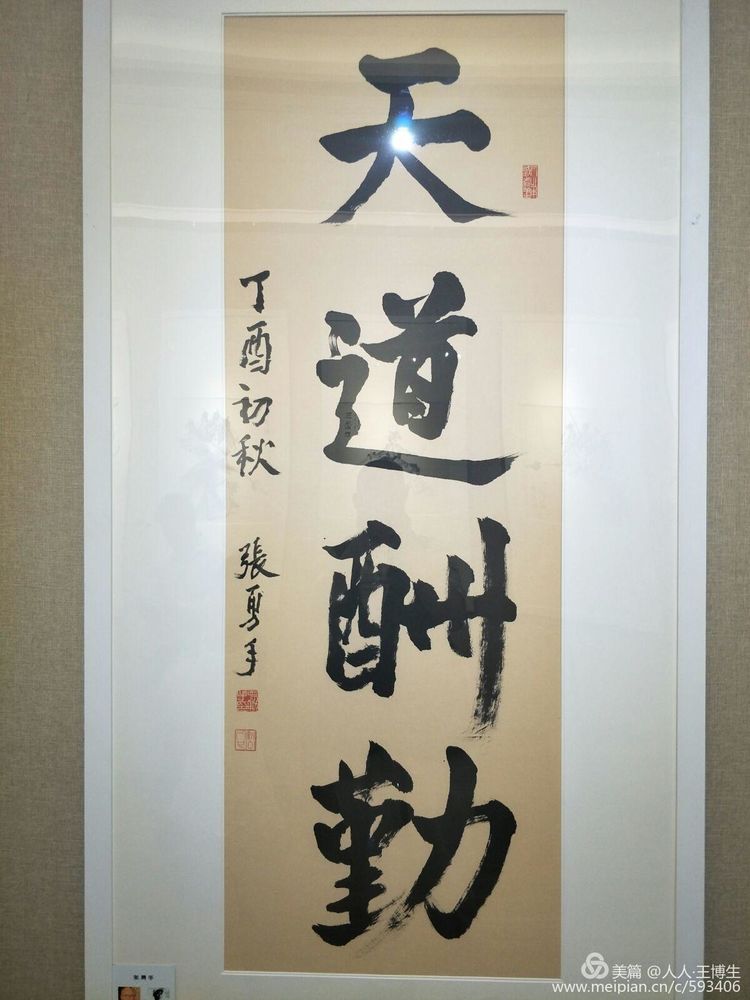 天道酬勤
丁酉初秋 張勇手
美篇 @人人·王博生
www.meipian.cn/c/593406